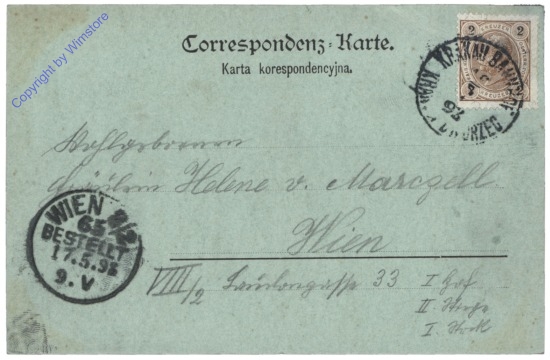 Copyright by Wimstore
2 KREUZER 2
KRAKAU BAHNHOF
93
DWORZEC
Correspondenz-Karte.
Karta korespondencyjna.
Wohlgeboren
Fräulein Helene v. Marczell
Wien
VIII/2 Laudongasse 33 I Hof
II. Stiege
I. Stock
WIEN 8/2
63
BESTELLT
17.5.93
9.V